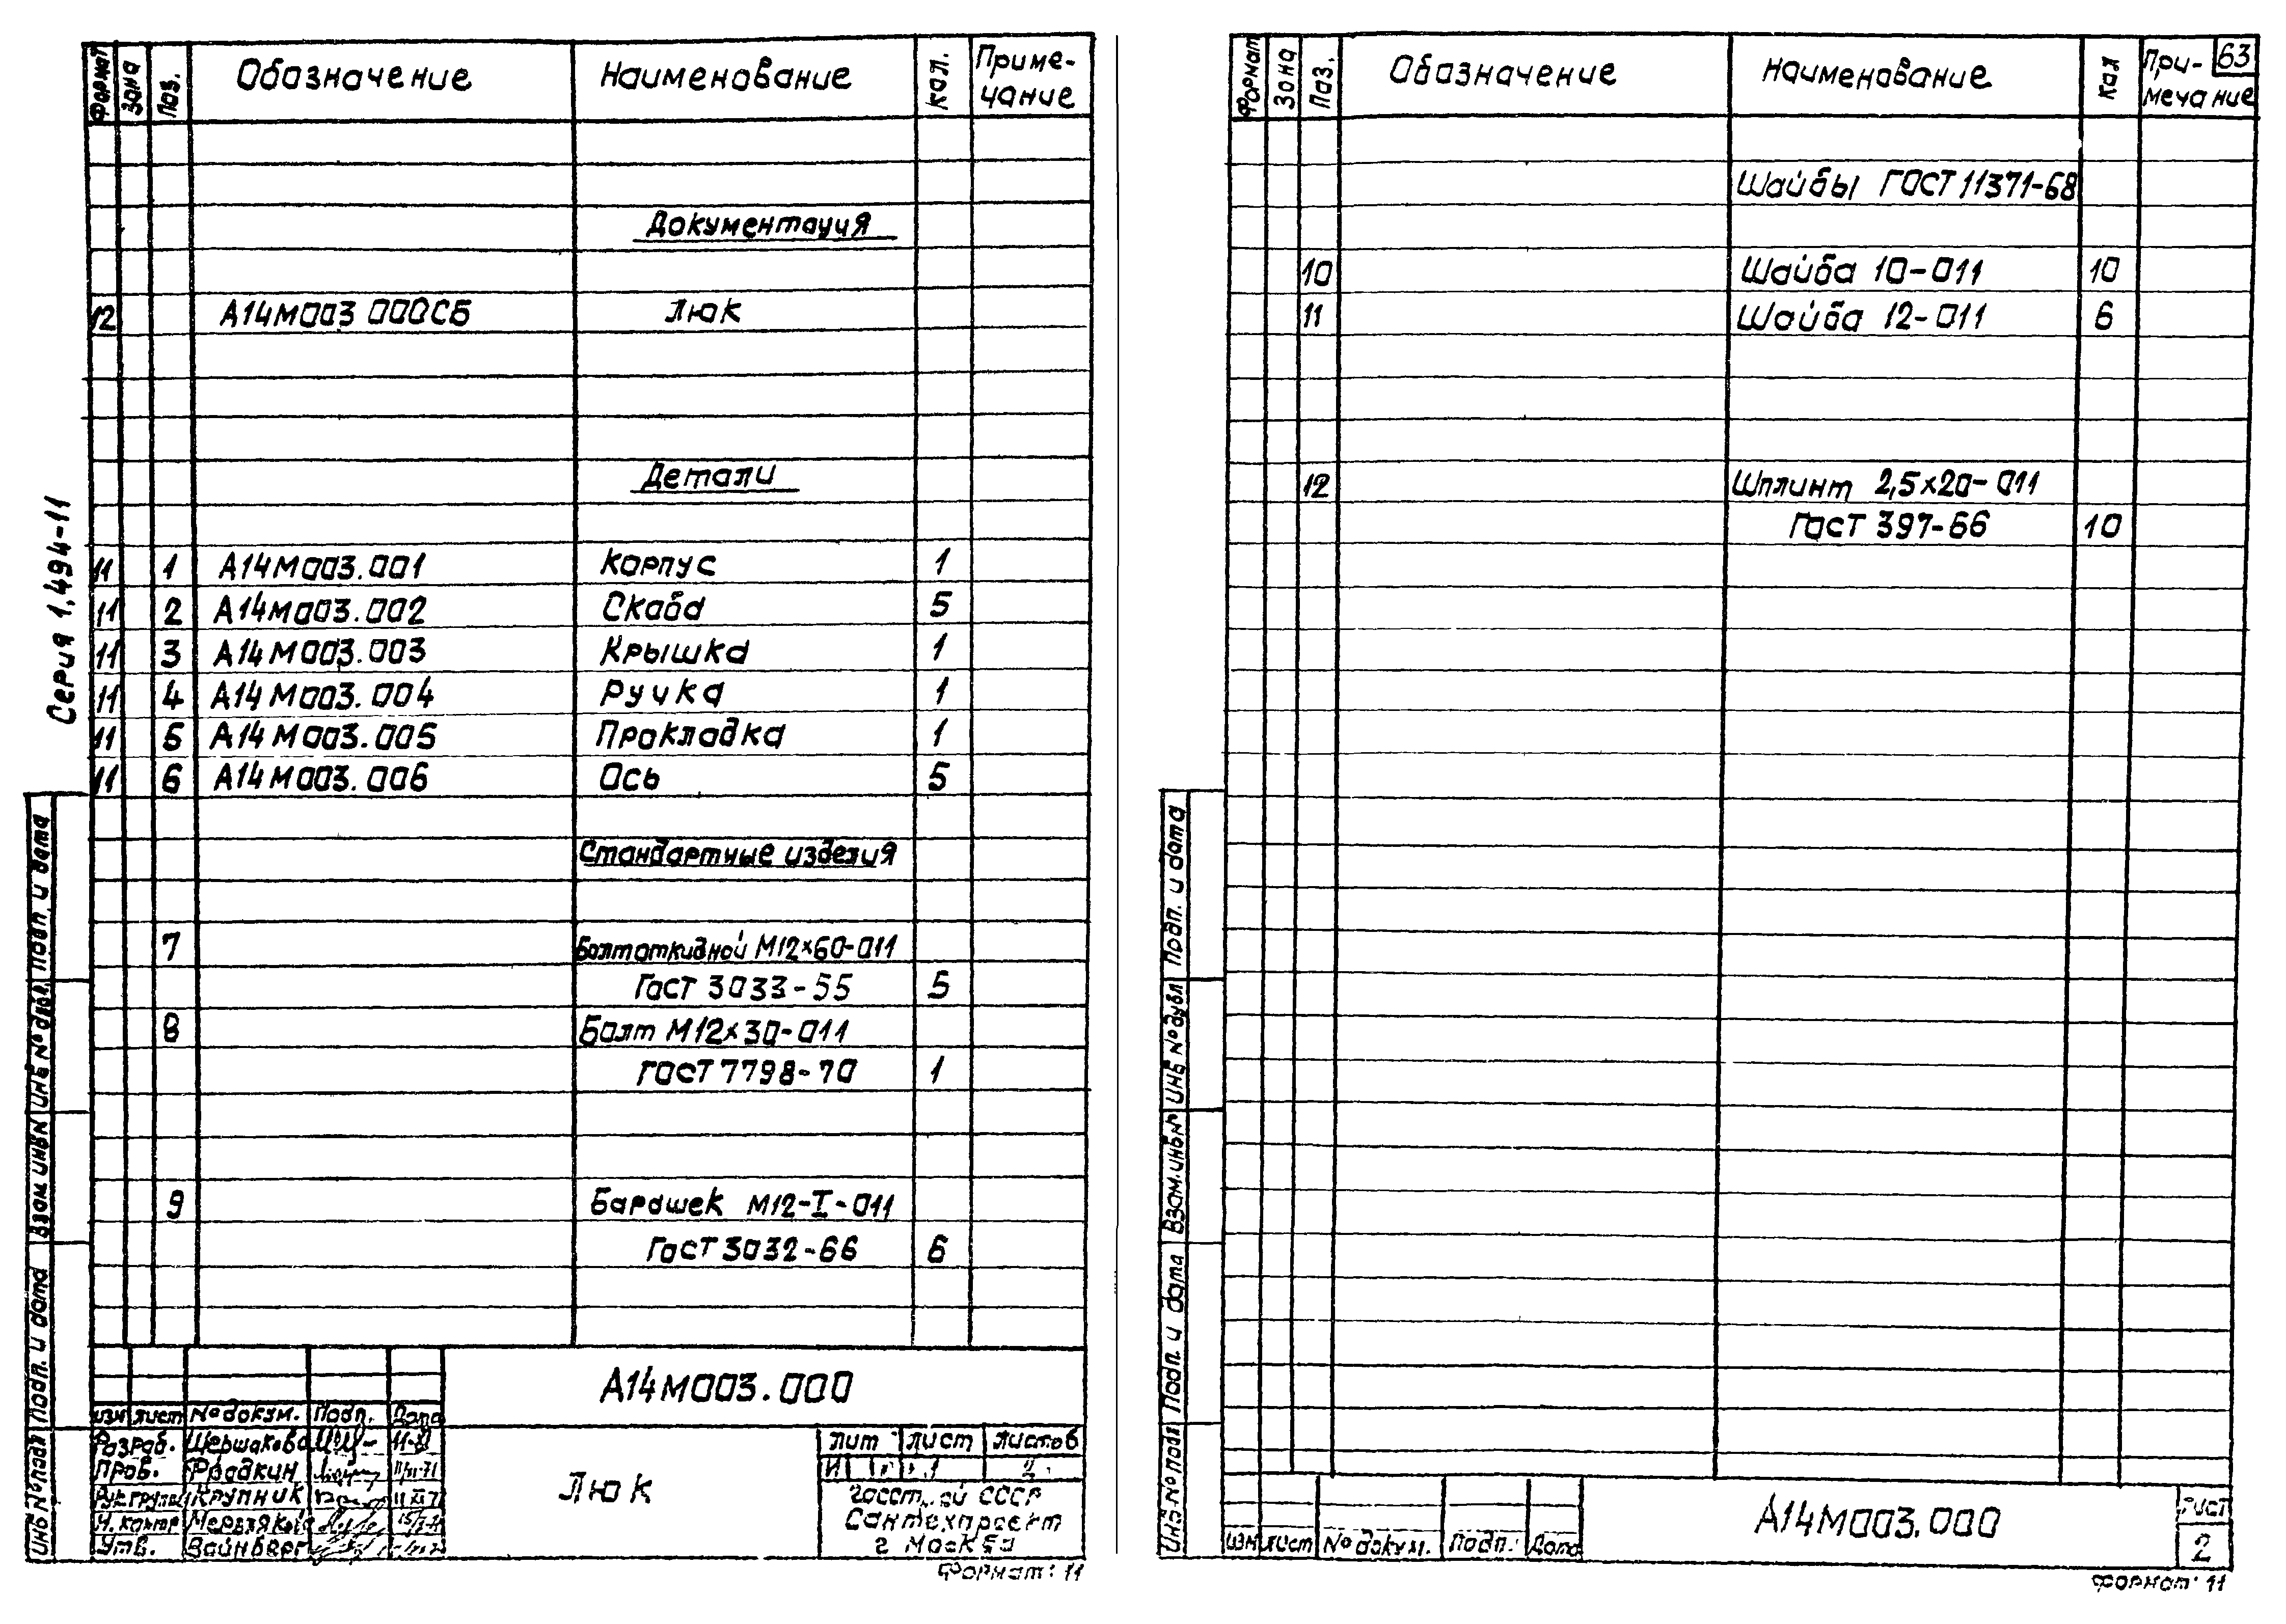 Серия 1.494-11
Формат Зона Поз. Обозначение Наименование Кол. Приме-
чание
Документация
12 А14М003.000СБ Люк
Детали
11 1 А14М003.001 Корпус 1
11 2 А14М003.002 Скоба 5
11 3 А14М003.003 Крышка 1
11 4 А14М003.004 Ручка 1
11 5 А14М003.005 Прокладка 1
11 6 А14М003.006 Ось 5
Стандартные изделия
7 Болт откидной М12×60-011
ГОСТ 3033-55 5
8 Болт М12×30-011
ГОСТ 7798-70 1
9 Барашек М12-I-011
ГОСТ 3032-66 6
Инв № подл Подп. и дата Взам инв № Инв № дубл. Подп. и дата
А14М003.000
Изм Лист № докум. Подп. Дата
Разраб. Шершакова
Пров. Фрадкин
Рук групы Крупник
Н. контр
Утв. Вайнберг
Люк
Лит Лист Листов
И 1 2
СССР
Сантехпроект
г Москва
Формат: 11
63
Формат Зона Поз. Обозначение Наименование Кол При-
мечание
Шайбы ГОСТ 11371-68
10 Шайба 10-011 10
11 Шайба 12-011 6
12 Шплинт 2,5×20-011
ГОСТ 397-66 10
Инв № подл Подп. и дата Взам. инв № Инв № дубл Подп. и дата
Изм Лист № докум. Подп. Дата
А14М003.000
Лист
2
Формат: 11